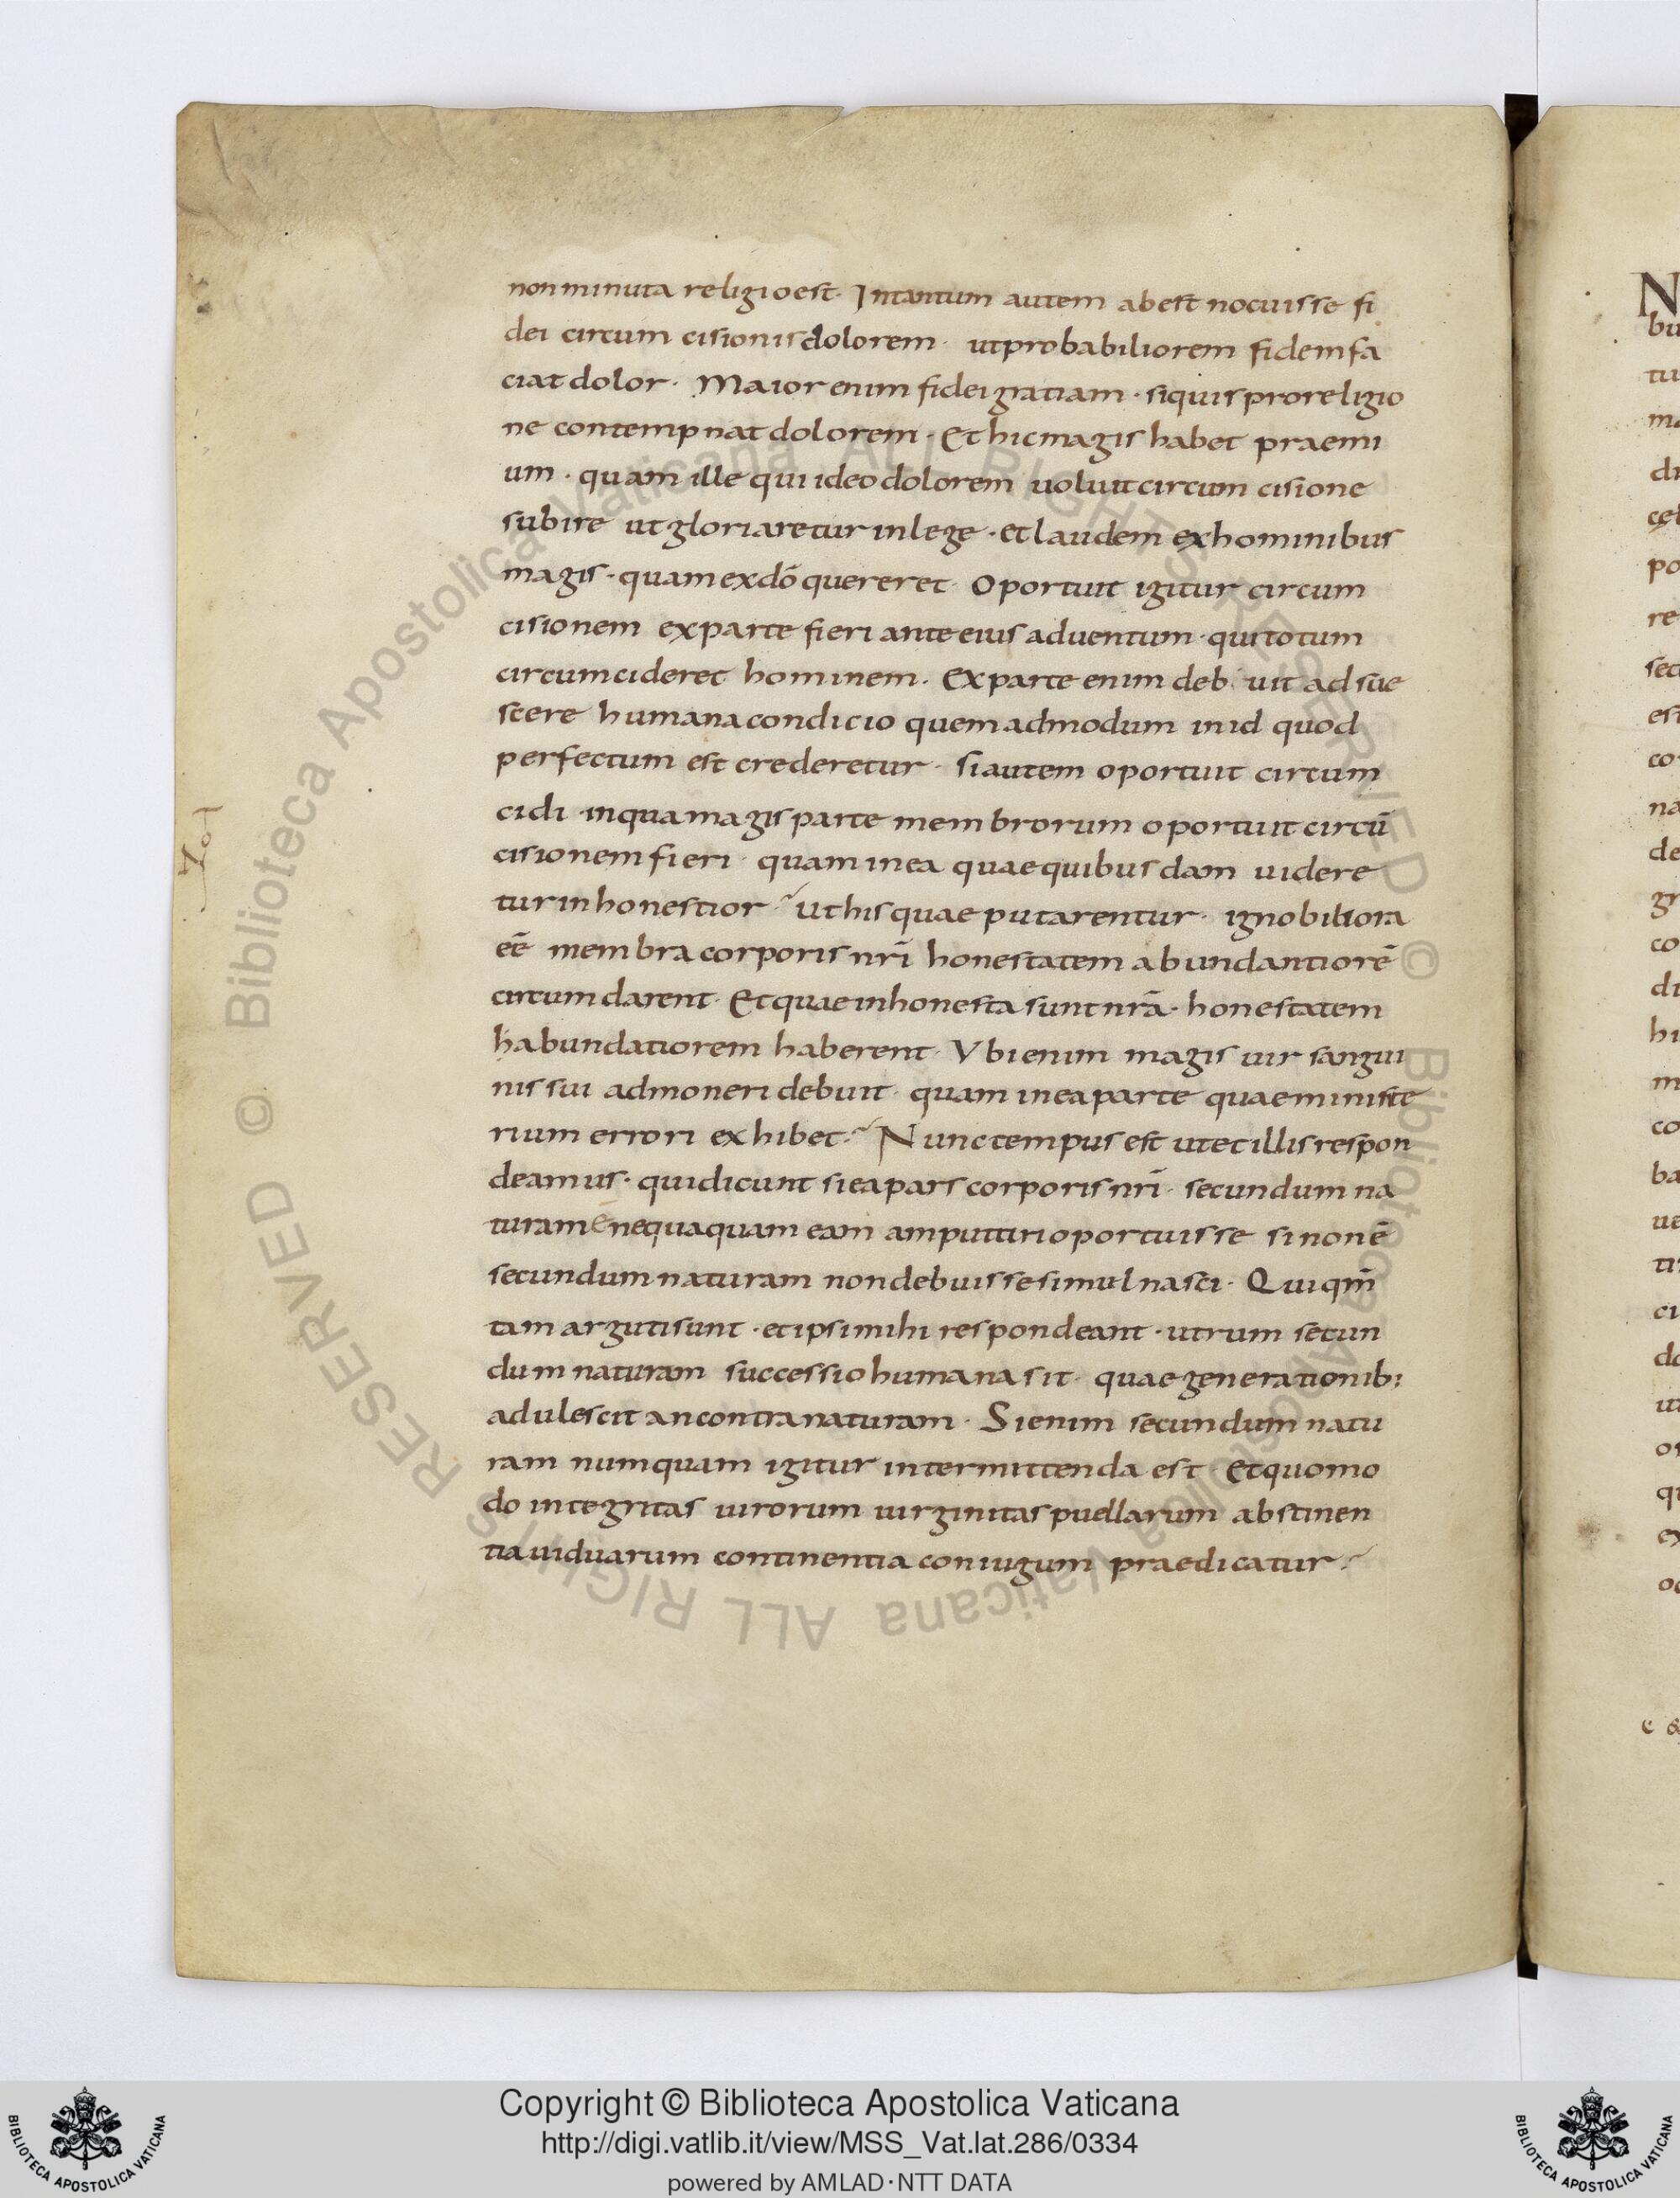 non minuta religio est. Intantum autem abest nocuisse fi
dei circum cisionis dolorem. ut probabiliorem fidem fa
ciat dolor. Maior enim fidei gratiam. siquis pro religio
ne contempnat dolorem. Et hic magis habet praemi
um. quam ille qui ideo dolorem uoluit circum cisione
subire ut gloriaretur in lege. et laudem ex hominibus
magis. quam ex dō quereret. Oportuit igitur circum
cisionem ex parte fieri ante eius aduentum. qui totum
circumcideret hominem. Ex parte enim deb uit adsue
scere humana condicio quem admodum in id quod
perfectum est crederetur. si autem oportuit circum
cidi in qua magis parte membrorum oportuit circū
cisionem fieri. quam in ea quae quibusdam uidere
tur inhonestior? ut his quae putarentur. ignobiliora
eē membra corporis nrī honestatem abundantiorē
circumdarent. Et quae inhonesta sunt nrā. honestatem
habundatiorem haberent. Vbi enim magis uir sangui
nis sui admoneri debuit. quam in ea parte quae ministe
rium errori exhibet? Nunc tempus est ut et illis respon
deamus. qui dicunt si ea pars corporis nrī. secundum na
turam ē nequaquam eam amputari oportuisse si non ē
secundum naturam non debuisse simul nasci. Qui qm̄
tam arguti sunt. et ipsi mihi respondeant. utrum secun
dum naturam successio humana sit. quae generationib;
adulescit an contra naturam. Si enim secundum natu
ram numquam igitur intermittenda est. Et quomo
do integritas uirorum uirginitas puellarum abstinen
tia uiduarum continentia coniugum praedicatur?
© Biblioteca Apostolica Vaticana ALL RIGHTS RESERVED
© Biblioteca Apostolica Vaticana ALL RIGHTS RESERVED
Copyright © Biblioteca Apostolica Vaticana
http://digi.vatlib.it/view/MSS_Vat.lat.286/0334
powered by AMLAD·NTT DATA
BIBLIOTECA APOSTOLICA VATICANA
BIBLIOTECA APOSTOLICA VATICANA